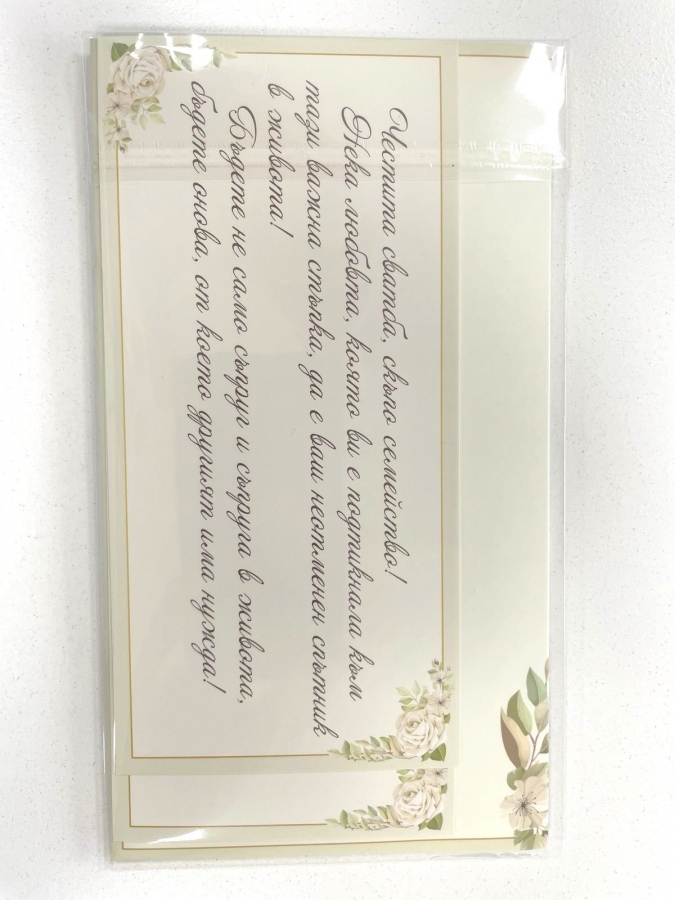 Честита сватба, скъпо семейство!
Нека любовта, която ви е подтикнала към
тази важна стъпка, да е ваш неотменен спътник
в живота!
Бъдете не само съпруг и съпруга в живота,
бъдете онова, от което другият има нужда!